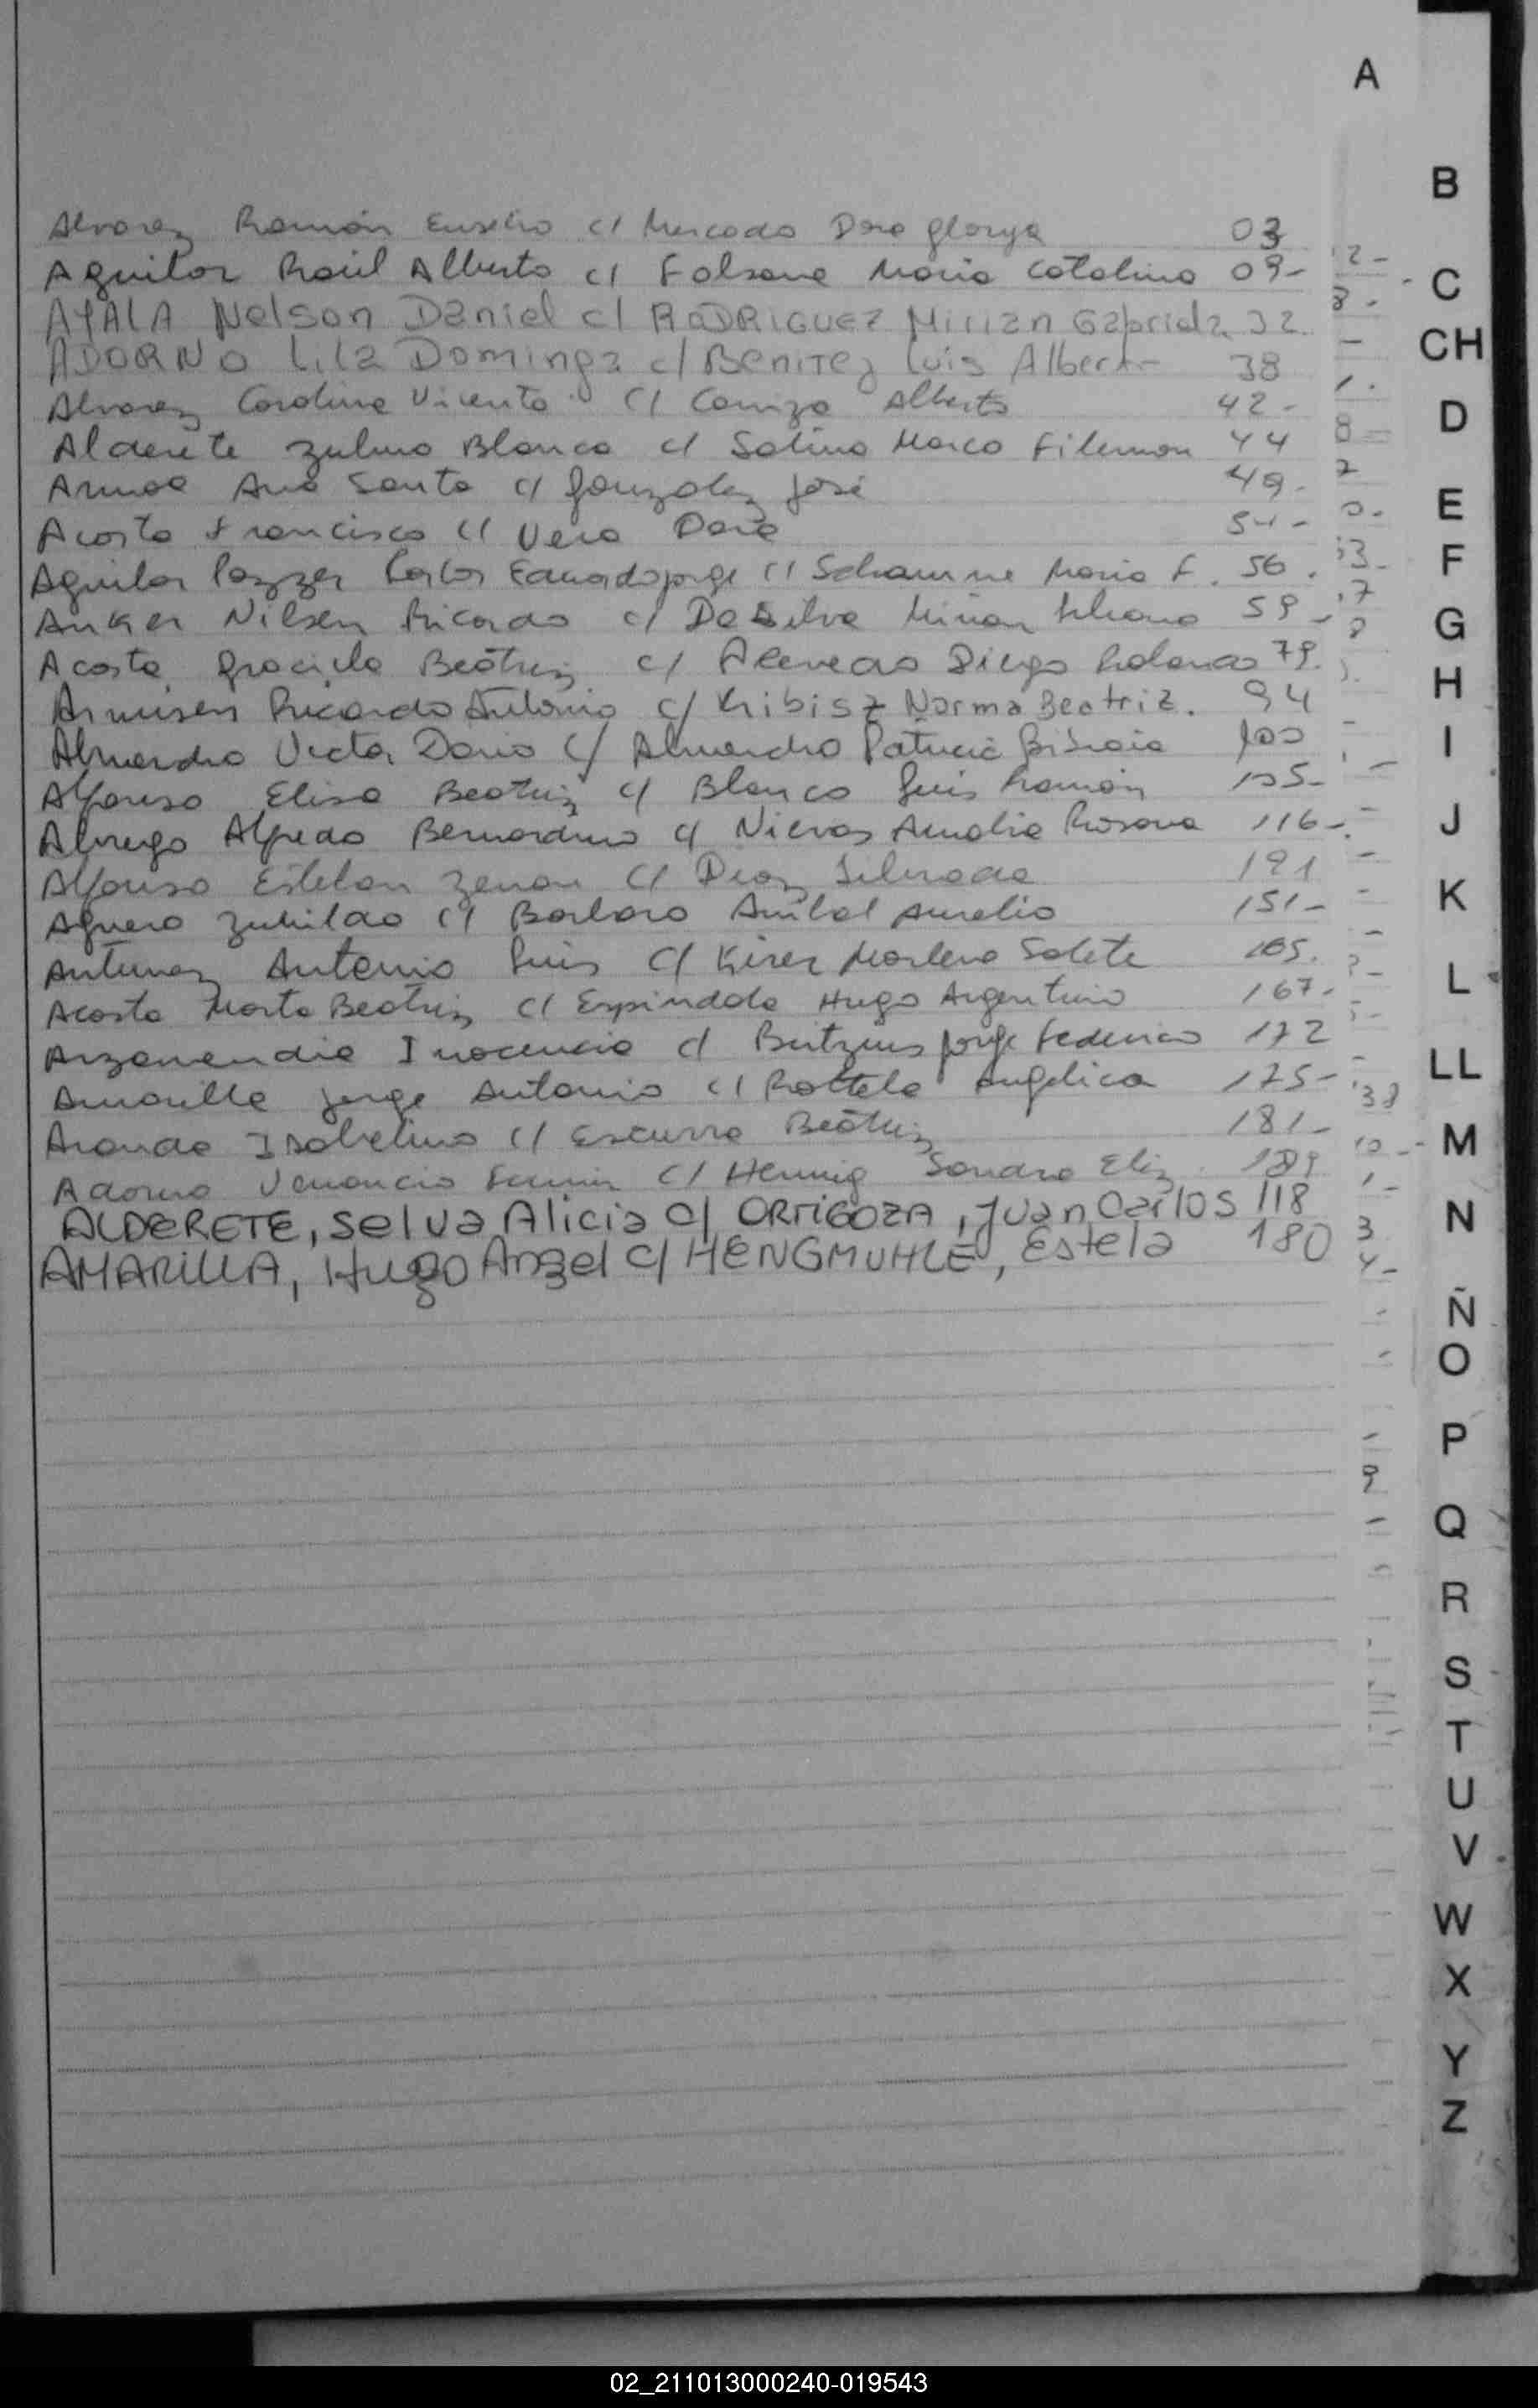 A
Alvarez Ramón Eusebio c/ Mercado Dora Gladys 03
Aguilar Raúl Alberto c/ Falsone Maria Catalina 09-
AYALA Nelson Daniel c/ RODRIGUEZ Mirian Gabriela 32
ADORNO Lila Dominga c/ Benitez Luis Alberto 38
Alvarez Carolina Vicenta c/ Alberto 42-
Alderete Zulma Blanca c/ Salina Marco Filemon 44
Ana Santa c/ Gonzalez José 49-
Acosta Francisco c/ Vera Dora 54-
Aguilar Pazzer Carlos Eduardo Jorge c/ Maria F. 56.
Anker Nilsen Ricardo c/ Da Silva Mirian 59-
Acosta Graciela Beatriz c/ Acevedo Diego Rolando 79.
Armisen Ricardo Antonio c/ Kribisz Norma Beatriz. 94
Almendro Victor Dario c/ Almendro Patricia 100
Alfonso Elisa Beatriz c/ Blanco Luis Ramón 105-
Alfredo Bernardino c/ Nievas Amalia Rosana 116-
Alfonso Esteban Zenon c/ Diaz 121
Aguero c/ Barbaro Anibal Aurelio 151-
Antunez Antonio Luis c/ Marlene Salete 165.
Acosta Marta Beatriz c/ Espindola Hugo Argentino 167-
Arzamendia Inocencia c/ Jorge Federico 172
Amarilla Jorge Antonio c/ Rottela Angelica 175-
Aranda Isabelino c/ Escurra Beatriz 181-
Adorno Venancio Fermin c/ Hennig Sandra Eliz. 189
ALDERETE, Selva Alicia c/ ORTIGOZA, Juan Carlos 118
AMARILLA, Hugo Angel c/ HENGMUHLE, Estela 180
B
C
CH
D
E
F
G
H
I
J
K
L
LL
M
N
Ñ
O
P
Q
R
S
T
U
V
W
X
Y
Z
02_211013000240-019543